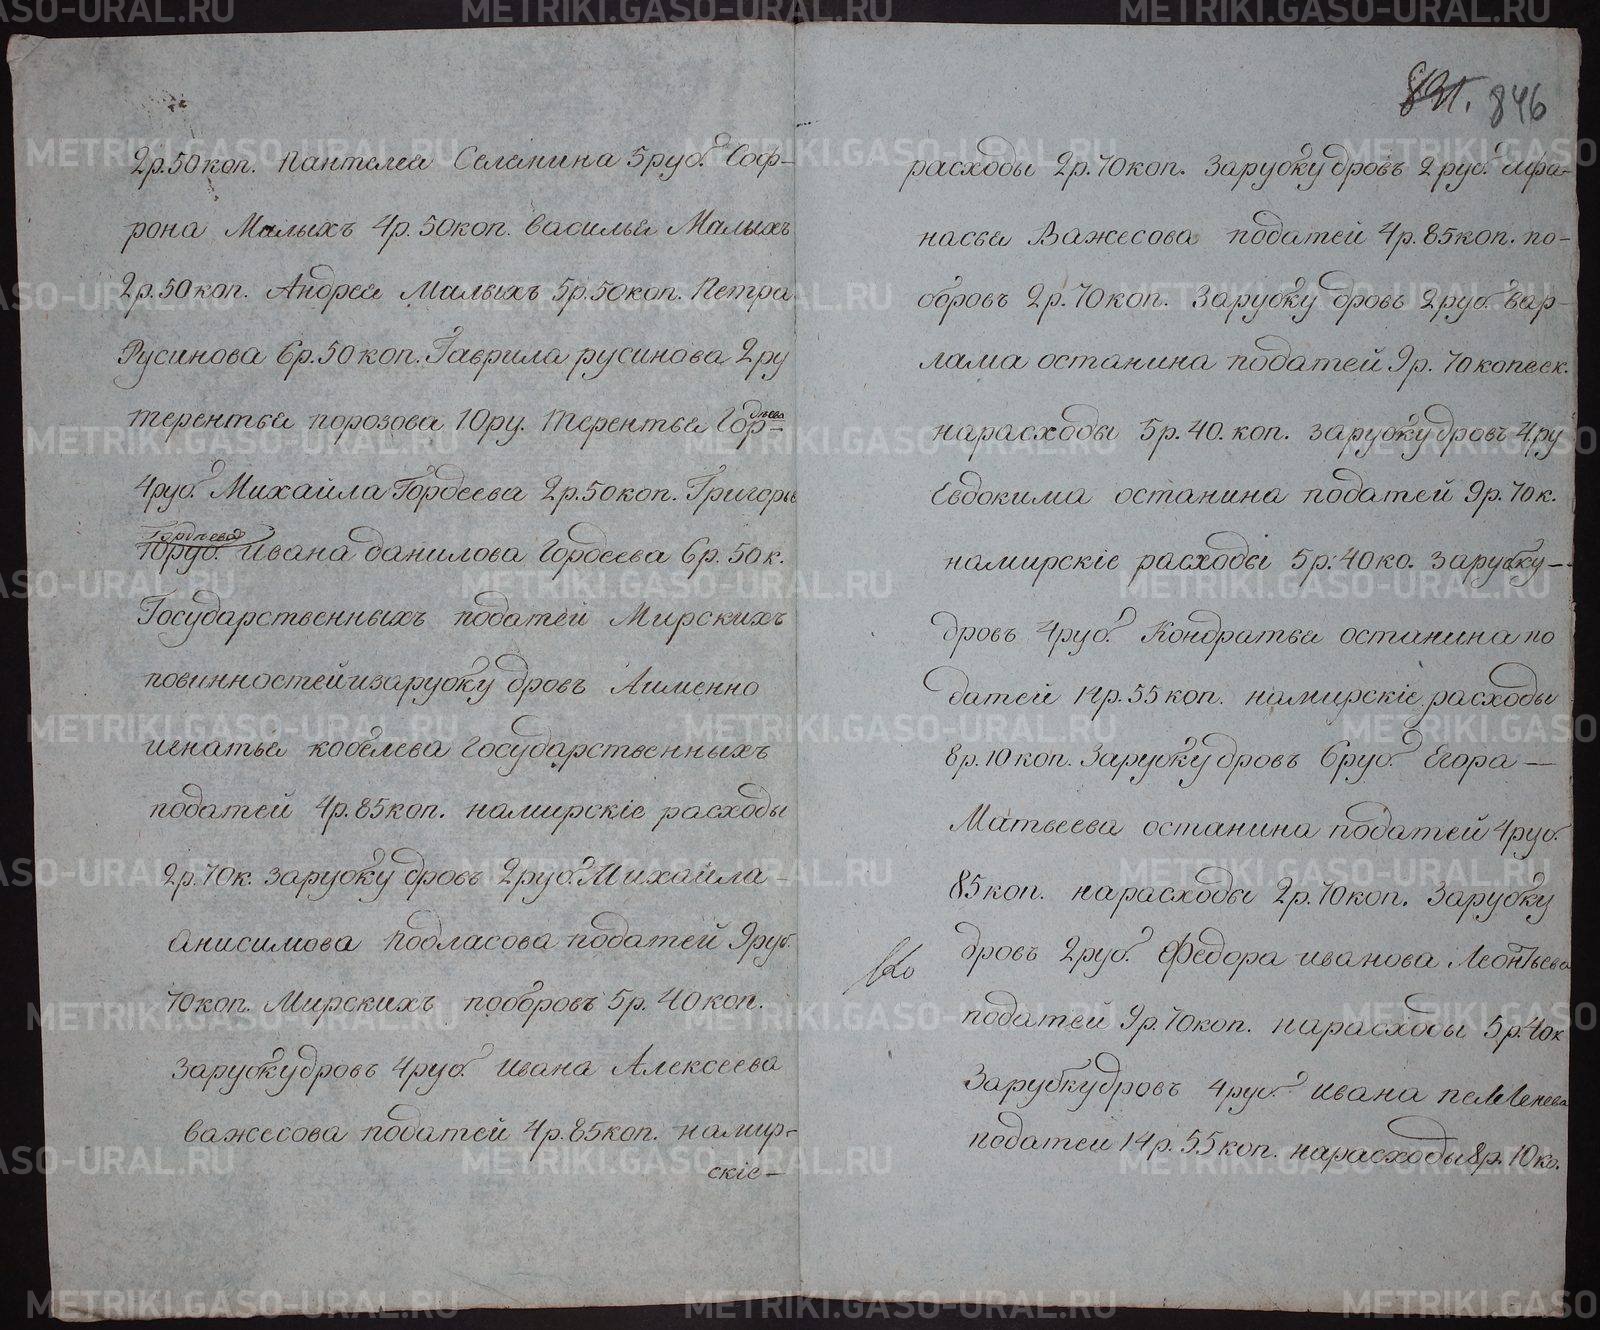 2р.50коп. Пантелея Селенина 5руб. Соф-
рона Малыхъ 4р. 50коп. Василья Малыхъ
2р.50коп. Андрея Малыхъ 5р.50коп. Петра
Русинова 6р.50коп. Гаврила русинова 2ру
терентья порозова 10ру. Терентья Гор-
дѣева
4руб. Михайла Гордеева 2р.50коп. Григорья
Гордѣева
10руб. Ивана данилова Гордеева 6р.50к.
Государственныхъ податей Мирскихъ
повинностей изарубку дровъ Аименно
игнатья кобелева государственныхъ
податей 4р.85коп. намирскіе расходы
2р.70к. Зарубку дровъ 2руб. Михайла
Анисимова Подласова податей 9руб.
70коп. Мирскихъ поборовъ 5р. 40коп.
Зарубку дровъ 4руб. Ивана Алексеева
важесова податей 4р.85коп. намир-
скіе-
846
расходы 2р.70коп. Зарубку дровъ 2руб. Афа-
насья Важесова податей 4р.85коп. по-
боровъ 2р.70коп. Зарубку дровъ 2руб. Вар-
лама останина податей 9р. 70копеек.
нарасходы 5р.40.коп. зарубку дровъ 4ру
Евдокима останина податей 9р.70к.
намирскіе расходы 5р.40ко. Зарубку-
дровъ 4руб. Кондратья останина по
датей 14р.55коп. намирскіе расходы
8р.10коп. Зарубку дровъ 6руб. Егора-
Матвеева останина податей 4руб.
85коп. нарасходы 2р.70коп. Зарубку
дровъ 2руб. Федора иванова Леонтьева
податей 9р.70коп. нарасходы 5р.40к
Зарубку дровъ 4руб. Ивана
податей 14р.55коп. нарасходы 8р.10ко.
METRIKI.GASO-URAL.RU